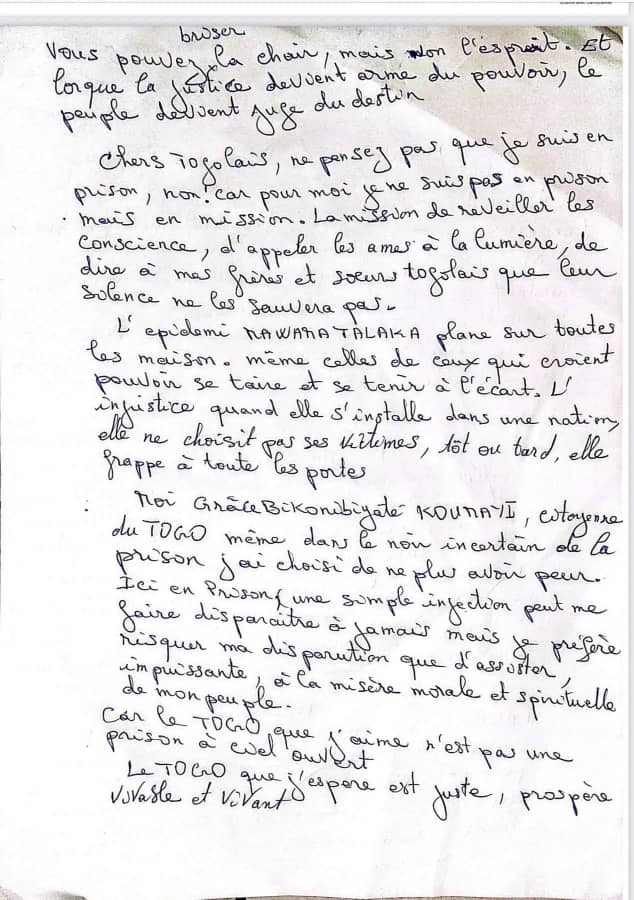 briser
Vous pouvez la chair, mais non l'esprit. Et
lorque la justice devient arme du pouvoir, le
peuple devient juge du destin
Chers Togolais, ne pensez pas que je suis en
prison, non! car pour moi je ne suis pas en prison
mais en mission. La mission de reveiller les
conscience, d'appeler les ames à la lumière, de
dire à mes frères et soeurs togolais que leur
silence ne les sauvera pas.
L'epidemi NAWANATALAKA plane sur toutes
les maison. même celles de ceux qui croient
pouvoir se taire et se tenir à l'écart. L'
injustice quand elle s'installe dans une nation,
elle ne choisit pas ses victimes, tôt ou tard, elle
frappe à toute les portes
Moi Grâce Bikonibiyate KOUMAYI, citoyenne
du TOGO même dans le noir incertain de la
prison j'ai choisi de ne plus avoir peur.
Ici en Prison, une simple injection peut me
faire disparaitre à jamais mais je préfère
risquer ma disparution que d'assister,
impuissante, à la misère morale et spirituelle
de mon peuple.
Car le TOGO que j'aime n'est pas une
prison à ciel ouvert
Le TOGO que j'espere est juste, prospère
vivable et vivant